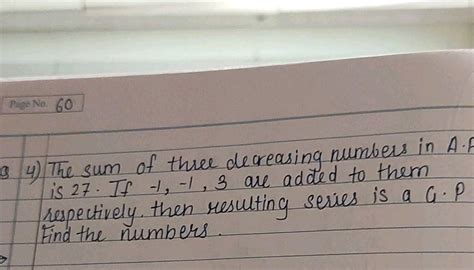 Page No. 60
3 4) The sum of three decreasing numbers in A.P
is 27. If -1, -1, 3 are added to them
respectively. then resulting series is a G.P
Find the numbers.